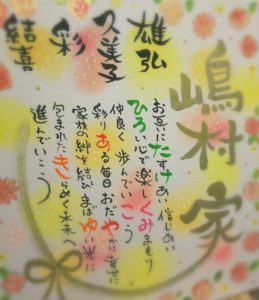 嶋村家
雄弘
久美子
彩
結喜
お互いにたすけあい信じあい
ひろい心で楽しくみまもり
仲良く歩んでいこう
彩りある毎日おだやかに幸せに
家族の絆を結びまばゆい光に
包まれたきらめく未来へ
進んでいこう